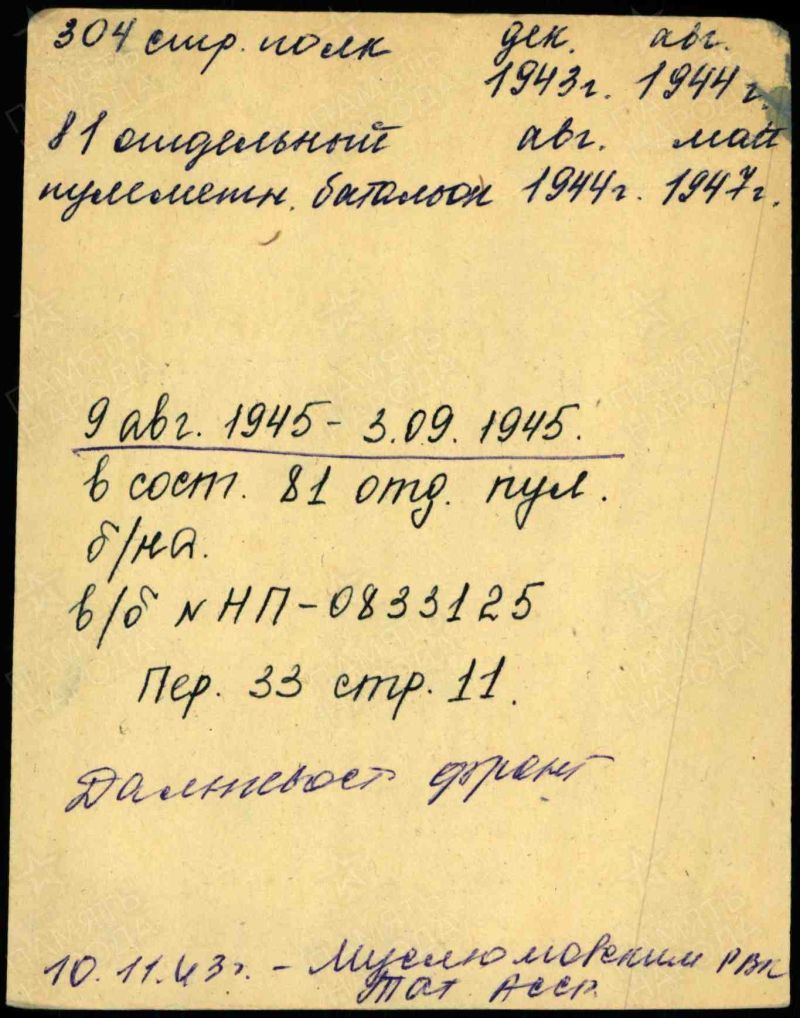 304 стр. полк дек. авг.
1943г. 1944г.
81 отдельный авг. май
пулеметн. батальон 1944г. 1947г.
9 авг. 1945 - 3.09. 1945.
в сост. 81 отд. пул.
б/на.
в/б № НП-0833125
Пер. 33 стр. 11.
Дальневост фронт
10.11.43г. - Муслюмовским РВК
Тат АССР